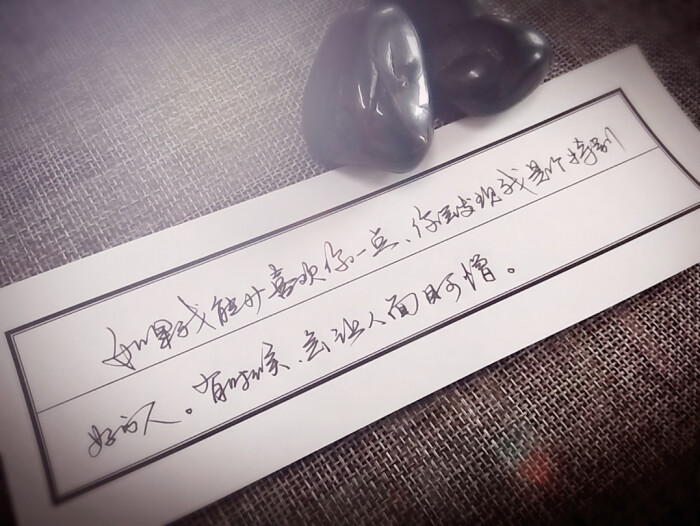 如果我能少喜欢你一点、你会发现我是个特别
好的人。有时候、让人面目可憎。